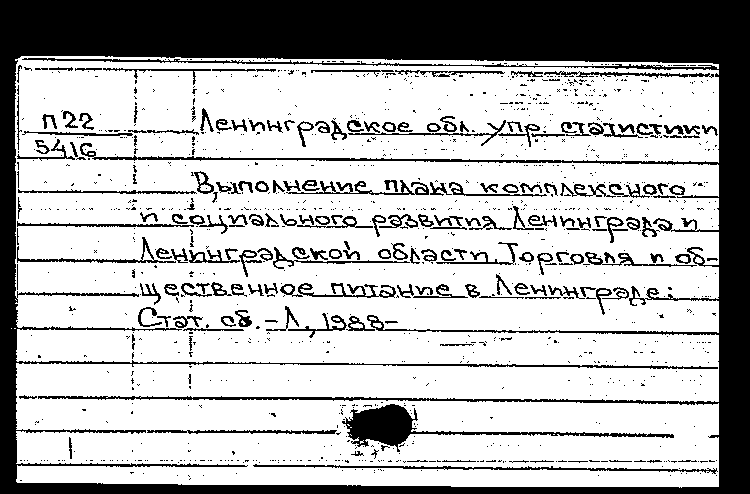 П22
5416
Ленинградское обл. упр. статистики
Выполнение плана комплексного
и социального развития Ленинграда и
Ленинградской области. Торговля и об-
щественное питание в Ленинграде:
Стат. сб. – Л., 1988–